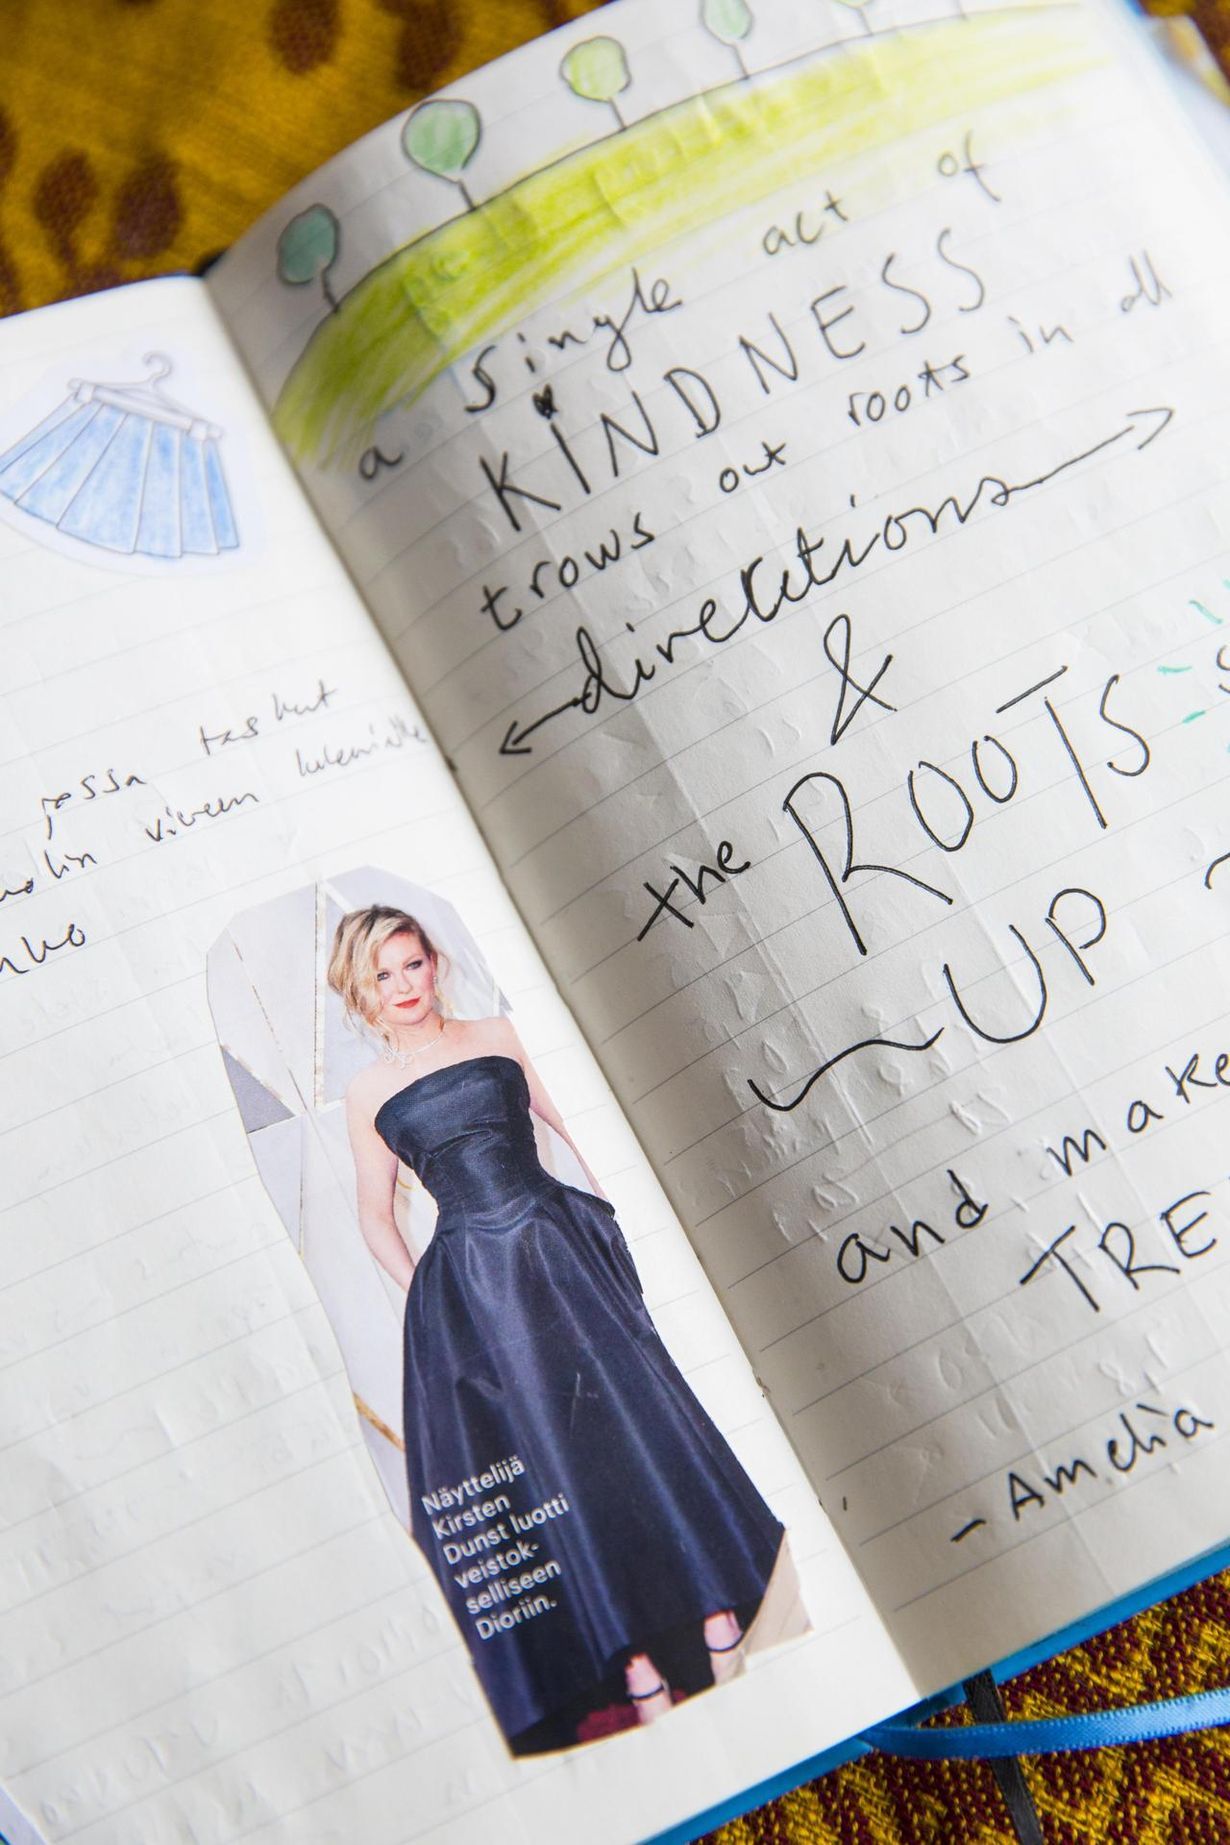 taskut
jossa
viveen
Näyttelijä
Kirsten
Dunst luotti
veistok-
selliseen
Dioriin.
a single act of
KINDNESS
trows out roots in all
directitions
&
the ROOTS
UP
and make
TRE
- Amelia